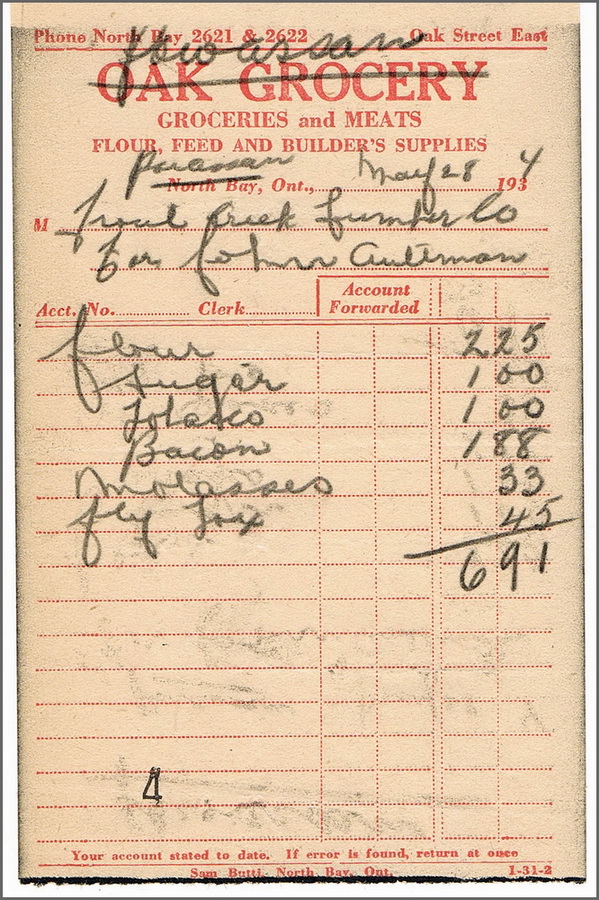 Phone North Bay 2621 & 2622 Oak Street East
OAK GROCERY
GROCERIES and MEATS
FLOUR, FEED AND BUILDER'S SUPPLIES
Powassan
North Bay, Ont., May 28 193 4
M Trout Creek Lumber Co
for John Aultman
Acct. No. Clerk Account Forwarded
flour 2 25
Sugar 1 00
Tobacco 1 00
Bacon 1 88
Molasses 33
fly Tox 45
6 91
4
Your account stated to date. If error is found, return at once
Sam Butti, North Bay, Ont. 1-31-2